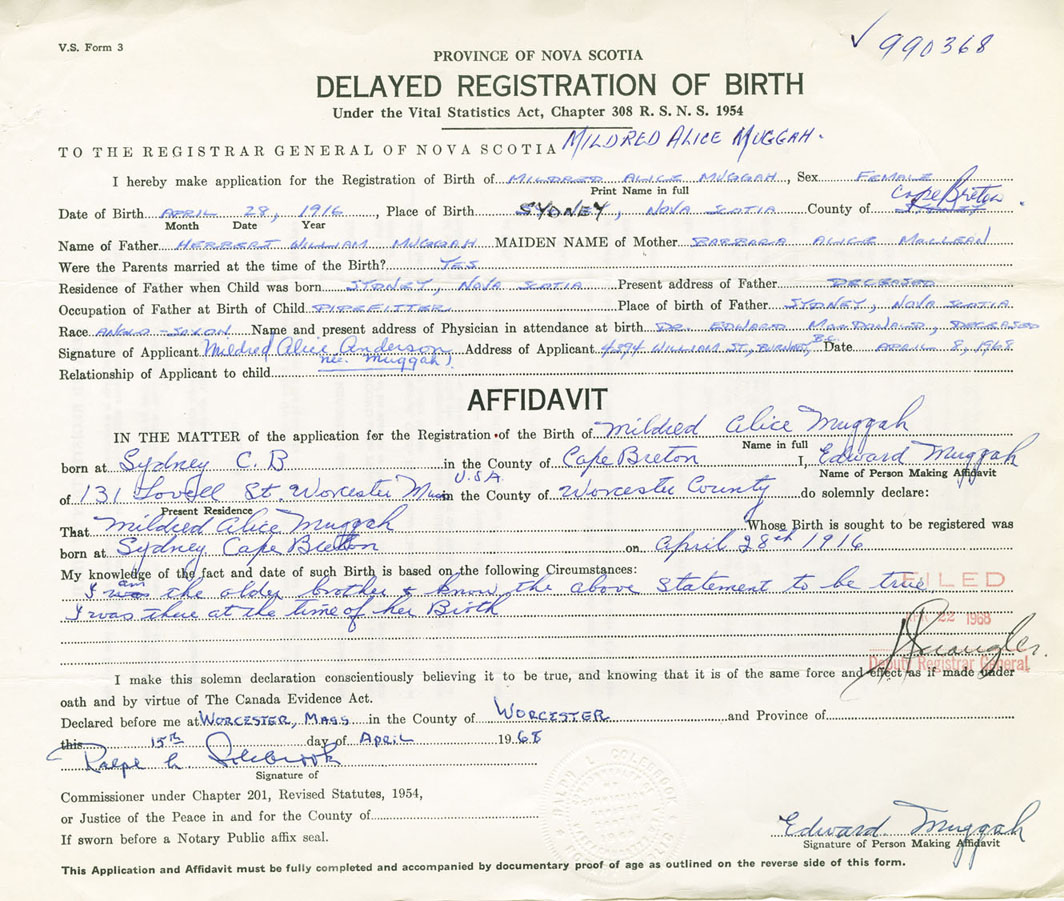 V.S. Form 3
✓ 990368
PROVINCE OF NOVA SCOTIA
DELAYED REGISTRATION OF BIRTH
Under the Vital Statistics Act, Chapter 308 R. S. N. S. 1954
TO THE REGISTRAR GENERAL OF NOVA SCOTIA MILDRED ALICE MUGGAH.
I hereby make application for the Registration of Birth of MILDRED ALICE MUGGAH, Sex FEMALE
Print Name in full
Cape Breton
Date of Birth APRIL 28, 1916, Place of Birth SYDNEY, NOVA SCOTIA County of SYDNEY
Month Date Year
Name of Father HERBERT WILLIAM MUGGAH MAIDEN NAME of Mother BARBARA ALICE MACLEAN
Were the Parents married at the time of the Birth? YES
Residence of Father when Child was born SYDNEY, NOVA SCOTIA Present address of Father DECEASED
Occupation of Father at Birth of Child PIPEFITTER Place of birth of Father SYDNEY, NOVA SCOTIA.
Race ANGLO-SAXON Name and present address of Physician in attendance at birth DR. EDWARD MACDONALD, DECEASED
Signature of Applicant Mildred Alice Anderson Address of Applicant 4894 WILLIAM ST., BURNABY, B.C. Date APRIL 8, 1968
nee Muggah).
Relationship of Applicant to child
AFFIDAVIT
IN THE MATTER of the application for the Registration of the Birth of Mildred Alice Muggah
Name in full
born at Sydney C. B in the County of Cape Breton I, Edward Muggah
U.S.A. Name of Person Making Affidavit
of 131 Lovell St. Worcester Mass in the County of Worcester County do solemnly declare:
Present Residence
That Mildred Alice Muggah Whose Birth is sought to be registered was
born at Sydney Cape Breton on April 28th 1916
My knowledge of the fact and date of such Birth is based on the following Circumstances:
am
I was the older brother & know the above statement to be true
FILED
I was there at the time of her Birth
22 1968
Deputy Registrar General
I make this solemn declaration conscientiously believing it to be true, and knowing that it is of the same force and effect as if made under
oath and by virtue of The Canada Evidence Act.
Declared before me at WORCESTER, MASS in the County of WORCESTER and Province of
this 15th day of APRIL 1968
Signature of
Commissioner under Chapter 201, Revised Statutes, 1954,
or Justice of the Peace in and for the County of
If sworn before a Notary Public affix seal.
Edward Muggah
Signature of Person Making Affidavit
This Application and Affidavit must be fully completed and accompanied by documentary proof of age as outlined on the reverse side of this form.